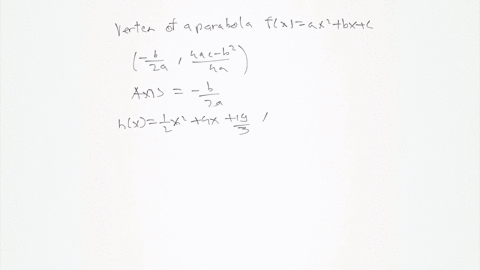 Vertex of a parabola f(x)=ax²+bx+c
(-b/2a, 4ac-b²/4a)
Axis = -b/2a
h(x)=1/2x²+4x+19/3,